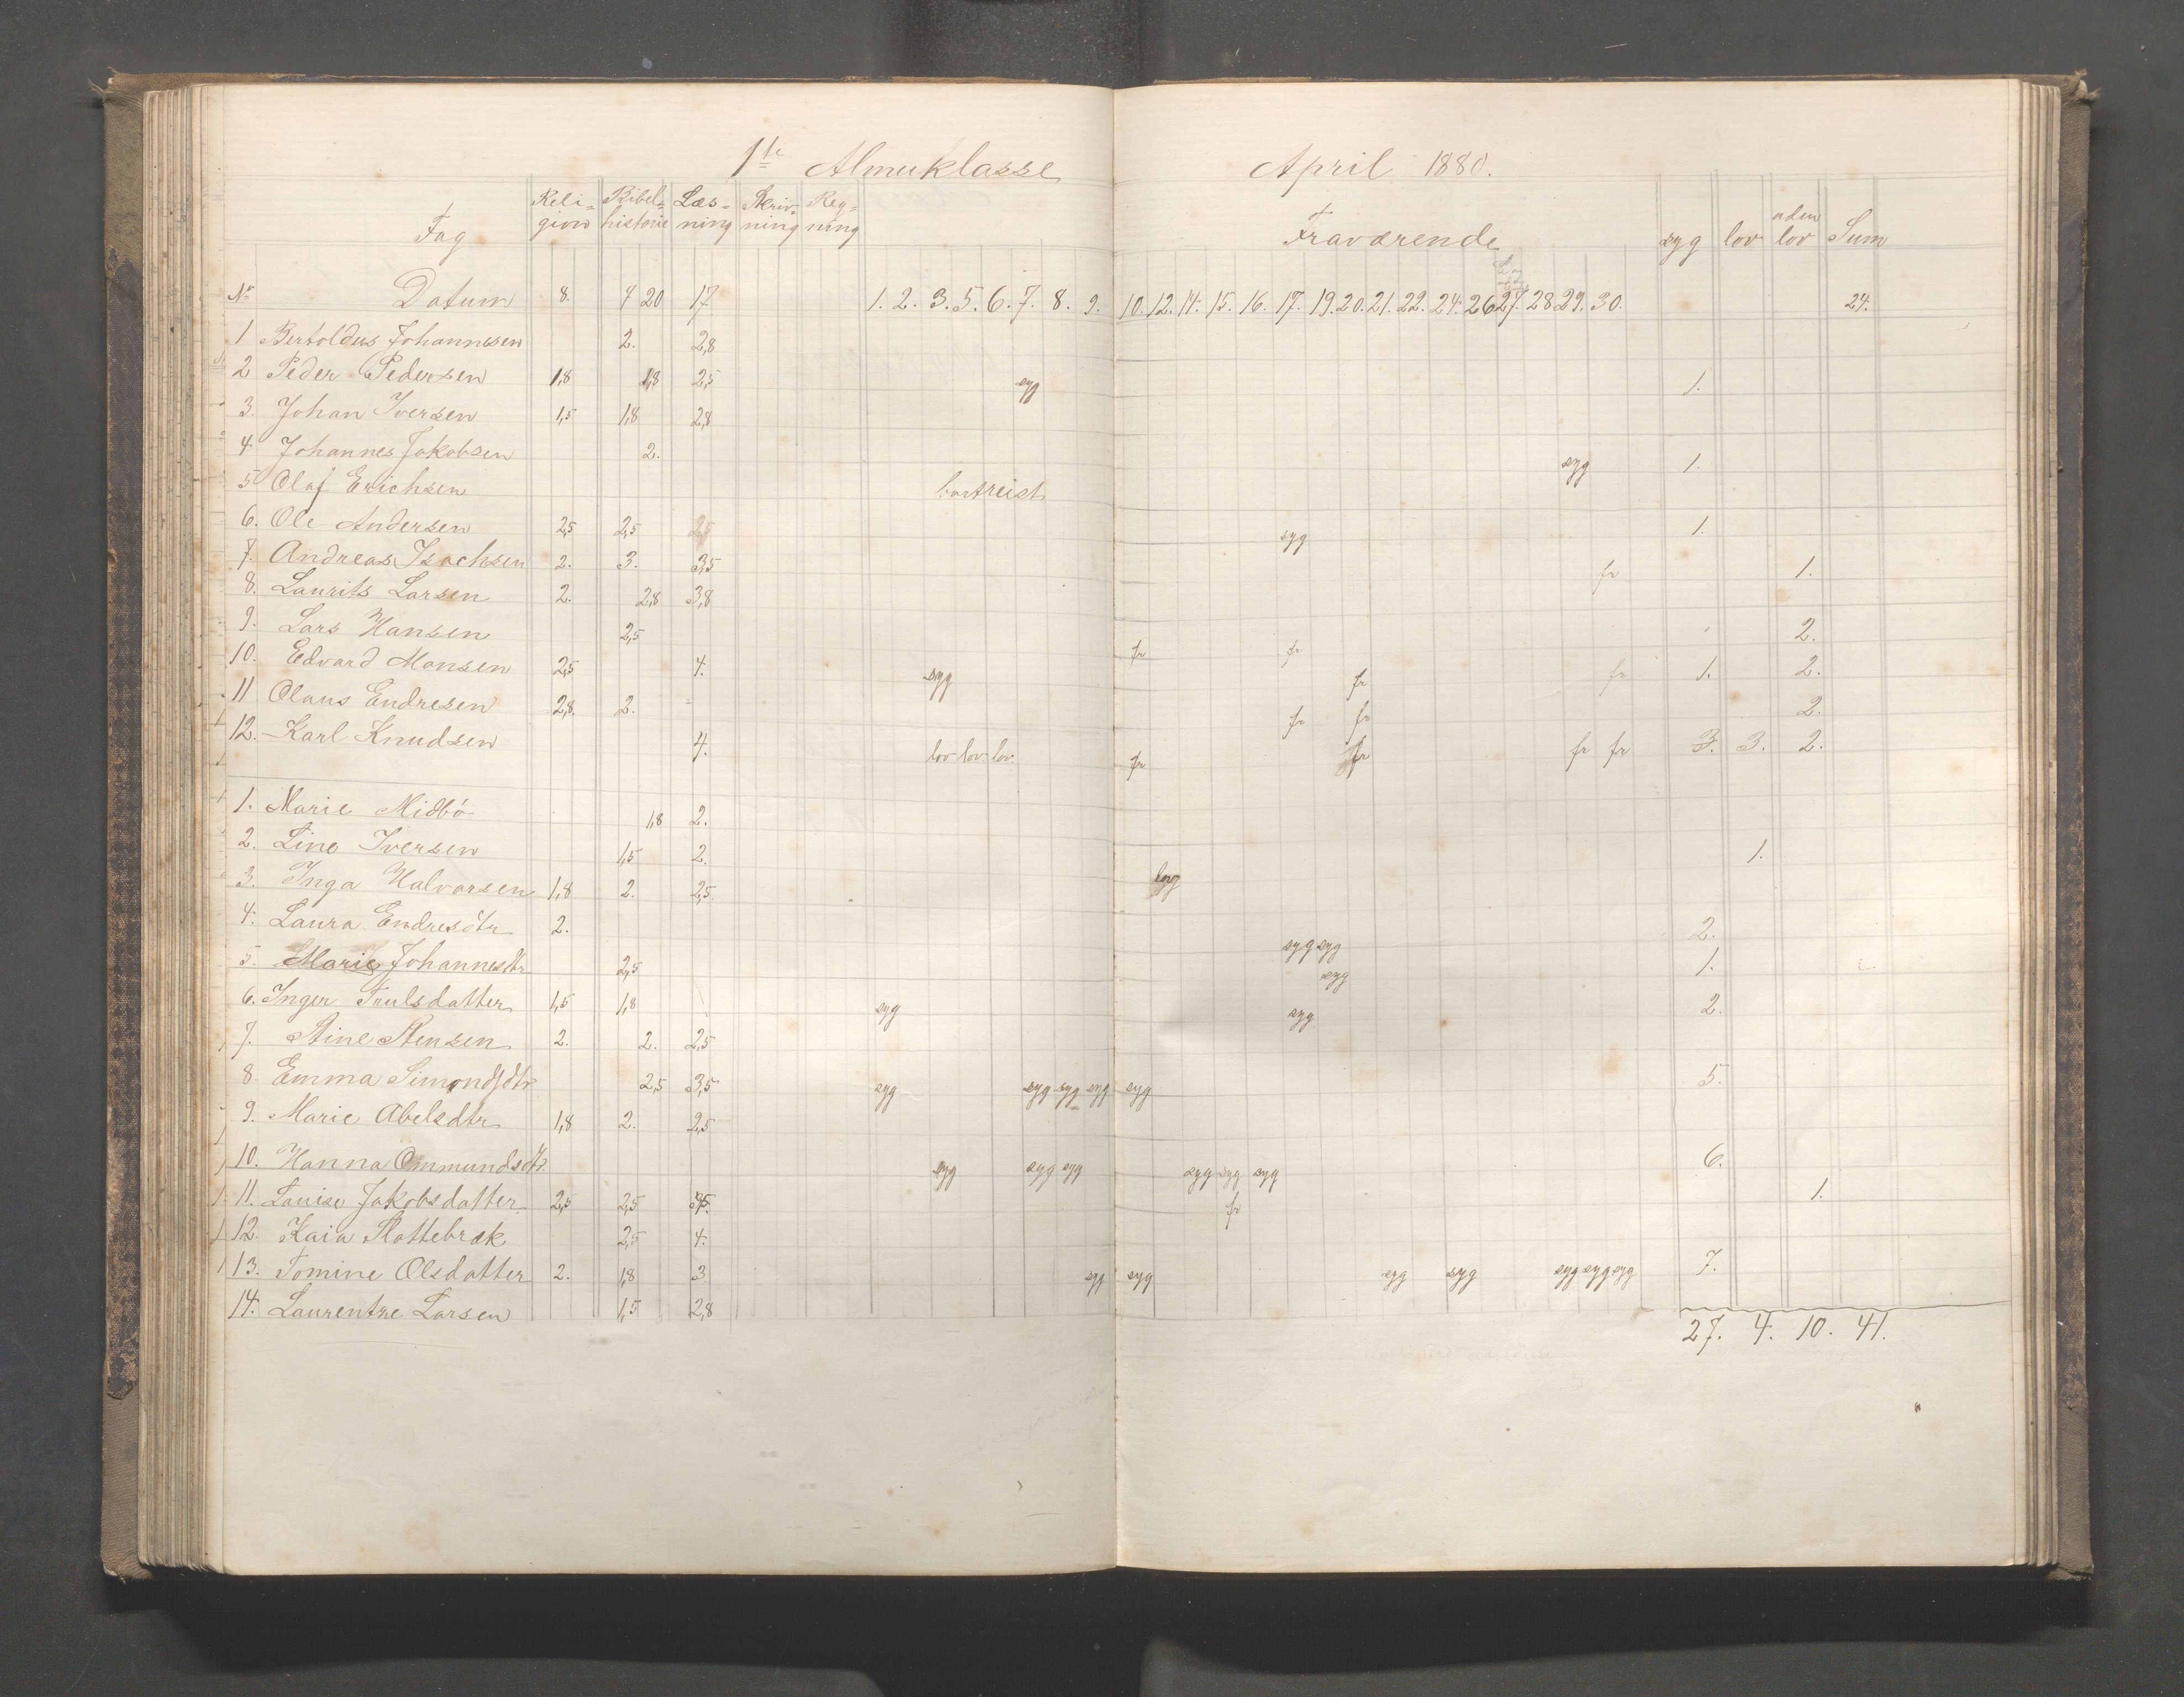 1ste Almueklasse April 1880.
Fag Reli=gion Bibel=historie Læs=ning Skriv=ning Reg=ning Fraværende syg lov uden lov Sum
No Datum 8. 9 20 17 1. 2. 3. 5. 6. 7. 8. 9. 10. 12. 14. 15. 16. 17. 19. 20. 21. 22. 24. 26 27. 28 29. 30. 24.
1 Bertoldus Johannesen 2. 2,8
2 Peder Pedersen 1,8 1,8 2,5 syg 1.
3. Johan Iversen 1,5 1,8 2,8
4 Johannes Jakobsen 2. syg 1.
5 Olaf Erichsen bortreist
6. Ole Andersen 2,5 2,5 2,5 syg 1.
7. Andreas Isachsen 2. 3. 3,5 fr 1.
8. Laurits Larsen 2. 2,8 3,8
9. Lars Hansen 2,5 fr fr 2.
10. Edvard Monsen 2,5 4. syg fr fr 1. 2.
11 Olaus Endresen 2,8. 2. fr fr 2.
12. Karl Knudsen 4. lov lov lov. fr fr fr fr 3. 3. 2.
1. Marie Midbö 1,8 2.
2. Line Iversen 1,5 2. 1.
3. Inga Halvorsen 1,8 2. 2,5 lov
4. Laura Endresdtr 2. syg syg 2.
5. Marie Johannesdtr 2,5 syg 1.
6. Inger Trulsdatter 1,5 1,8 syg syg 2.
7. Stine Stensen 2. 2. 2,5
8. Emma Simondsdtr 2,5 3,5 syg syg syg syg syg 5.
9. Marie Abelsdtr 1,8 2. 2,5
10. Hanna Ommundsdtr. syg syg syg syg syg syg 6.
11. Louise Jakobsdatter 2,5 2,5 fr 1.
12. Kaia Slottebræk 2,5 4.
13. Tomine Olsdatter 2. 1,8 3 syg syg syg syg syg syg syg 7.
14. Laurentze Larsen 1,5 2,8
27. 4. 10. 41.